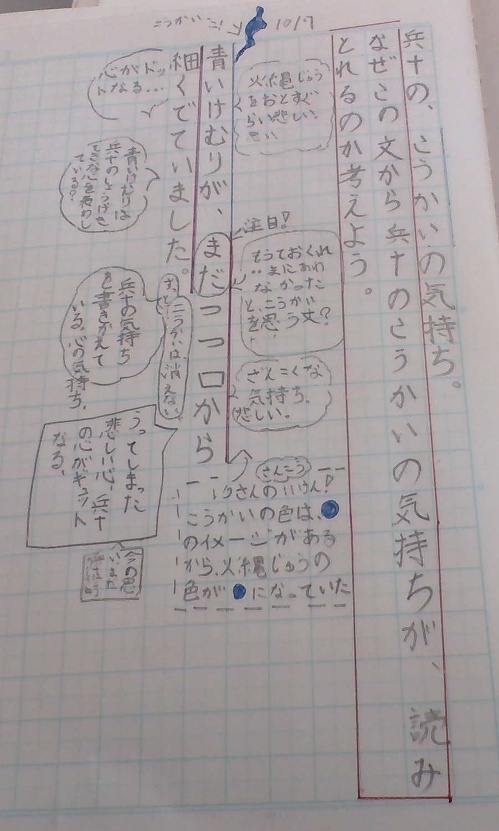 10/7
兵十の、こうかいの気持ち。
なぜこの文から兵十のこうかいの気持ちが、読み
とれるのか考えよう。
火縄じゅう
をおとすぐ
らい悲しい
思い
注目!
もうておくれ
まにあわ
なかった
と、こうかい
を思う文?
ざんこくな
気持ち。
悲しい。
さんこう
さんのいけん!
こうかいの色は、
のイメージがある
から、火縄じゅうの
色が になっていた
青いけむりが、まだつつ口から
細くでていました。
ずっとこうかいは消えない
心がドッ
トなる…
青いけむりは
兵十のしょうげき
兵十の気持ち
を書きかえて
いる。心の気持ち。
うってしまった
悲しい心、兵十
の心がギュット
なる、